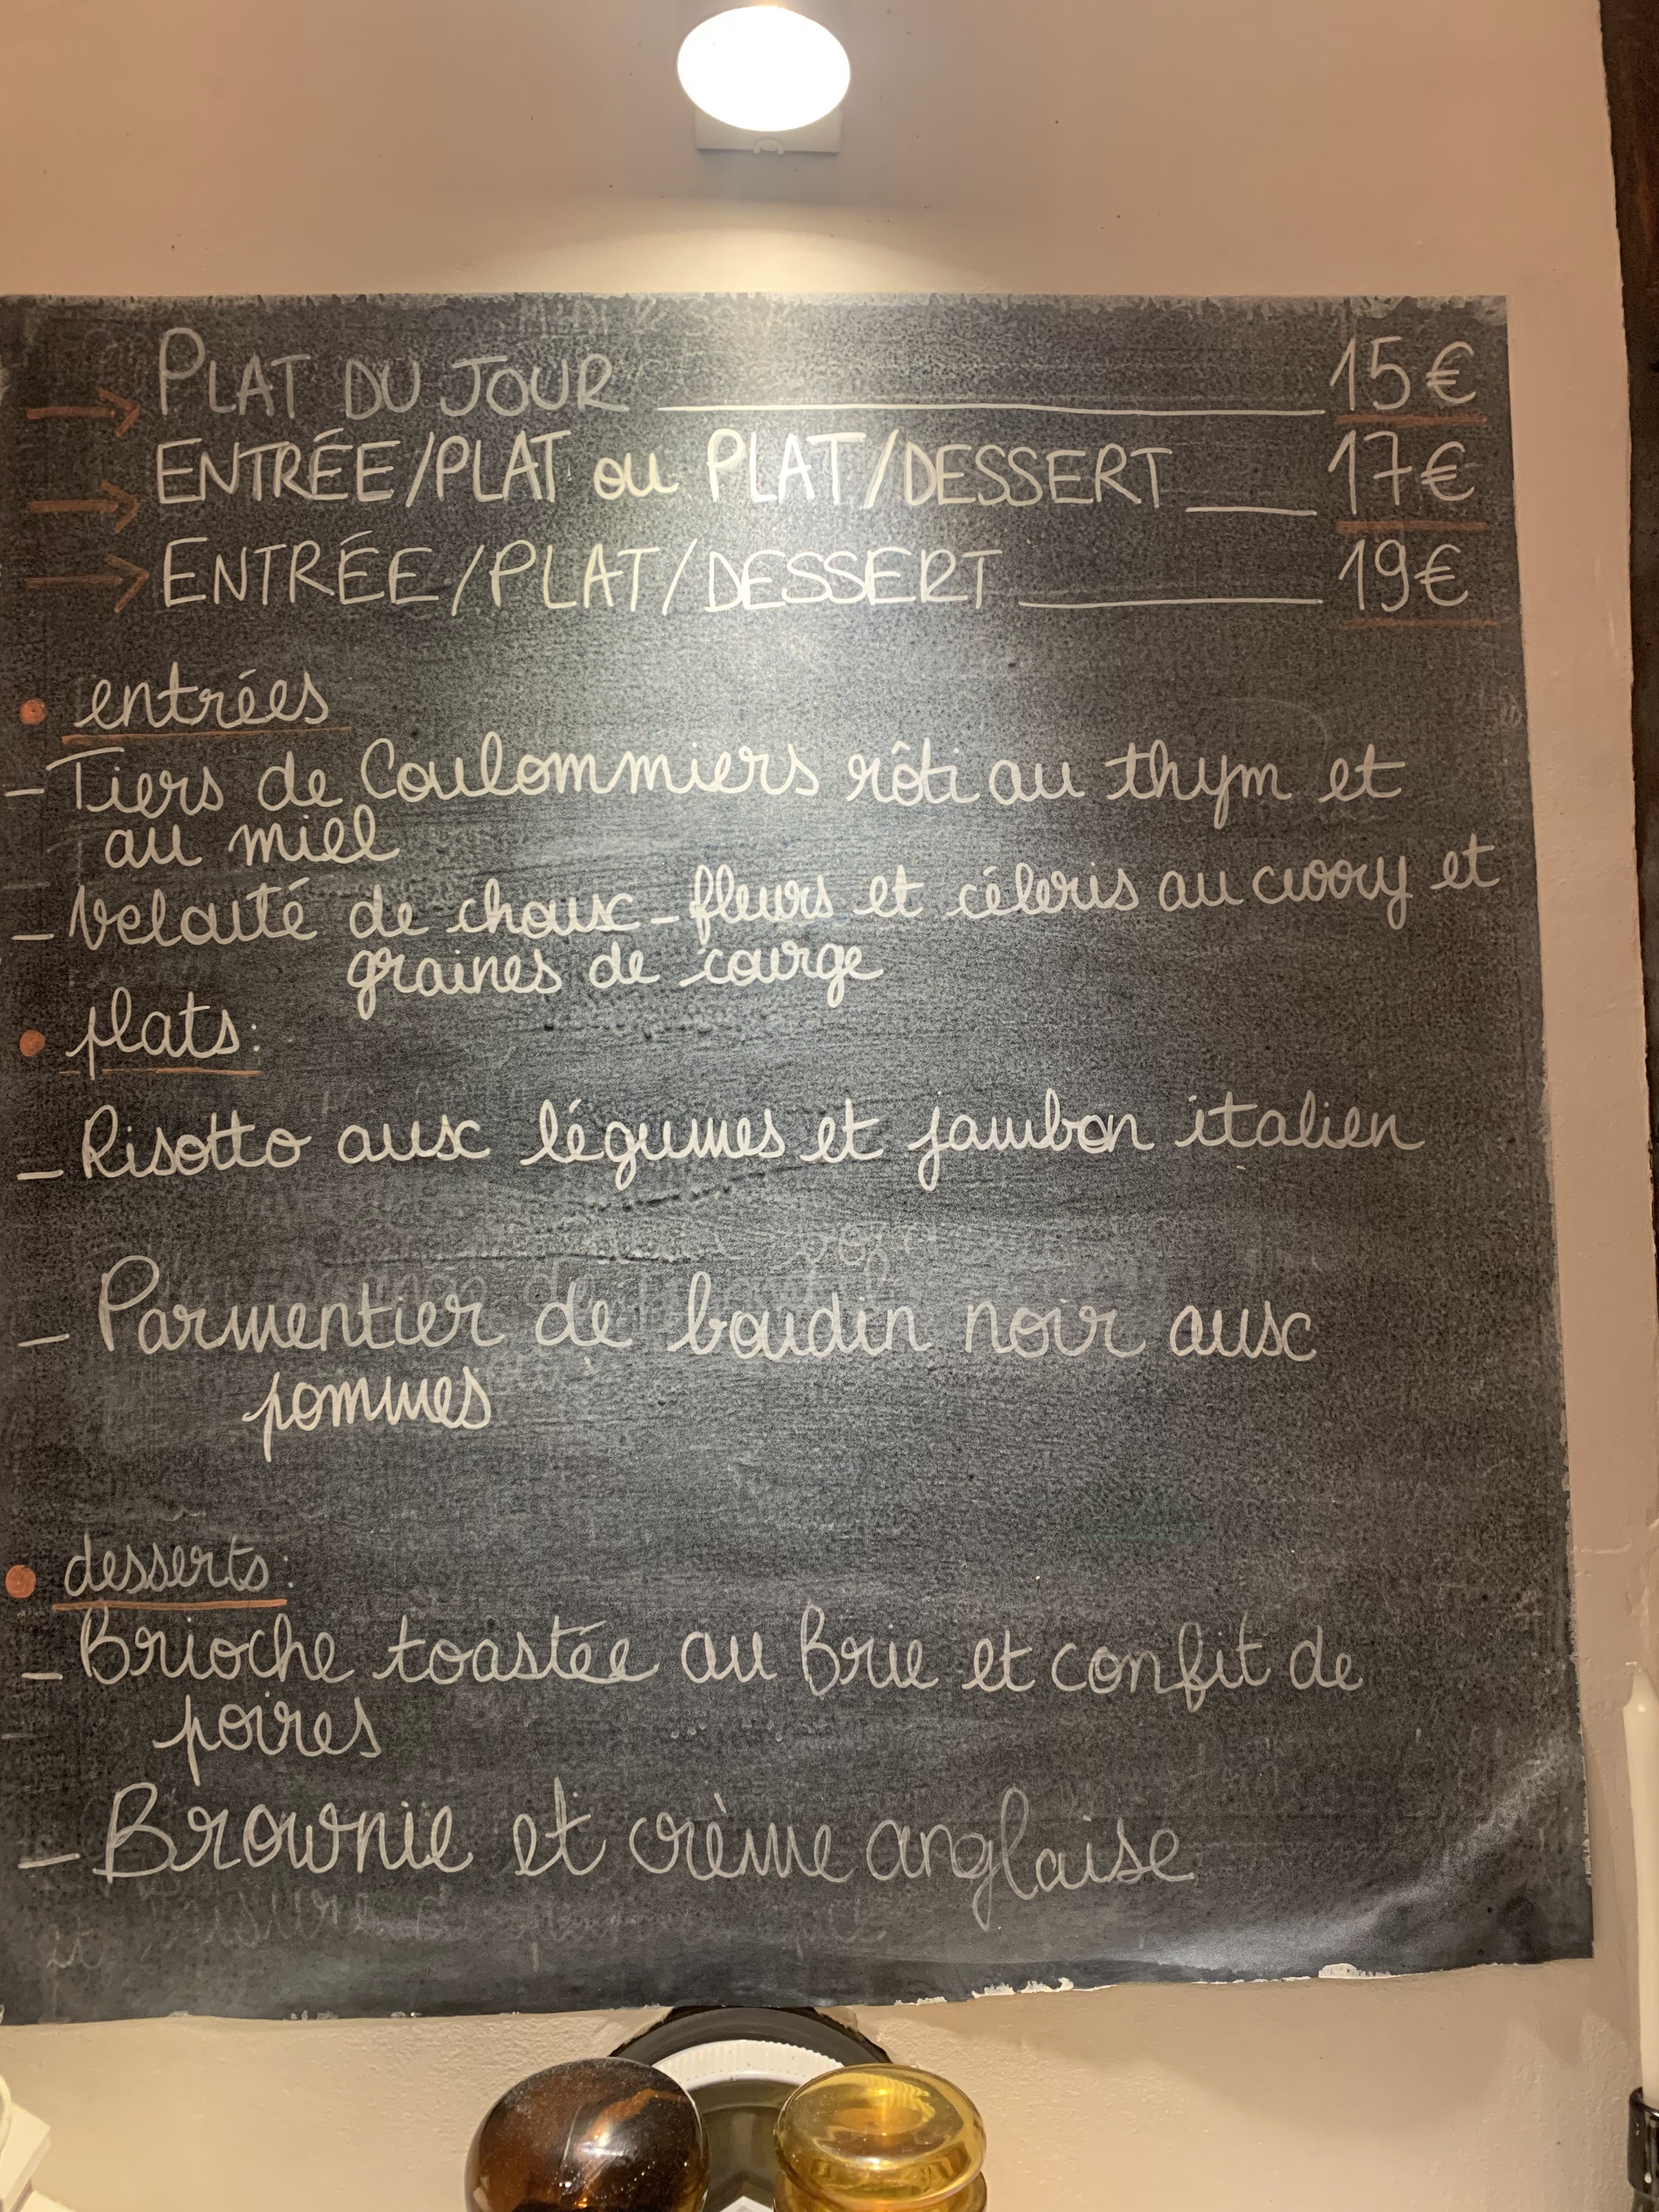 PLAT DU JOUR 15€
ENTRÉE/PLAT ou PLAT/DESSERT 17€
ENTRÉE/PLAT/DESSERT 19€
• entrées
- Tiers de Coulommiers rôti au thym et
au miel
- Velouté de choux-fleurs et céleris au curry et
graines de courge
• plats:
- Risotto aux légumes et jambon italien
- Parmentier de boudin noir aux
pommes
• desserts:
- Brioche toastée au Brie et confit de
poires
- Brownie et crème anglaise